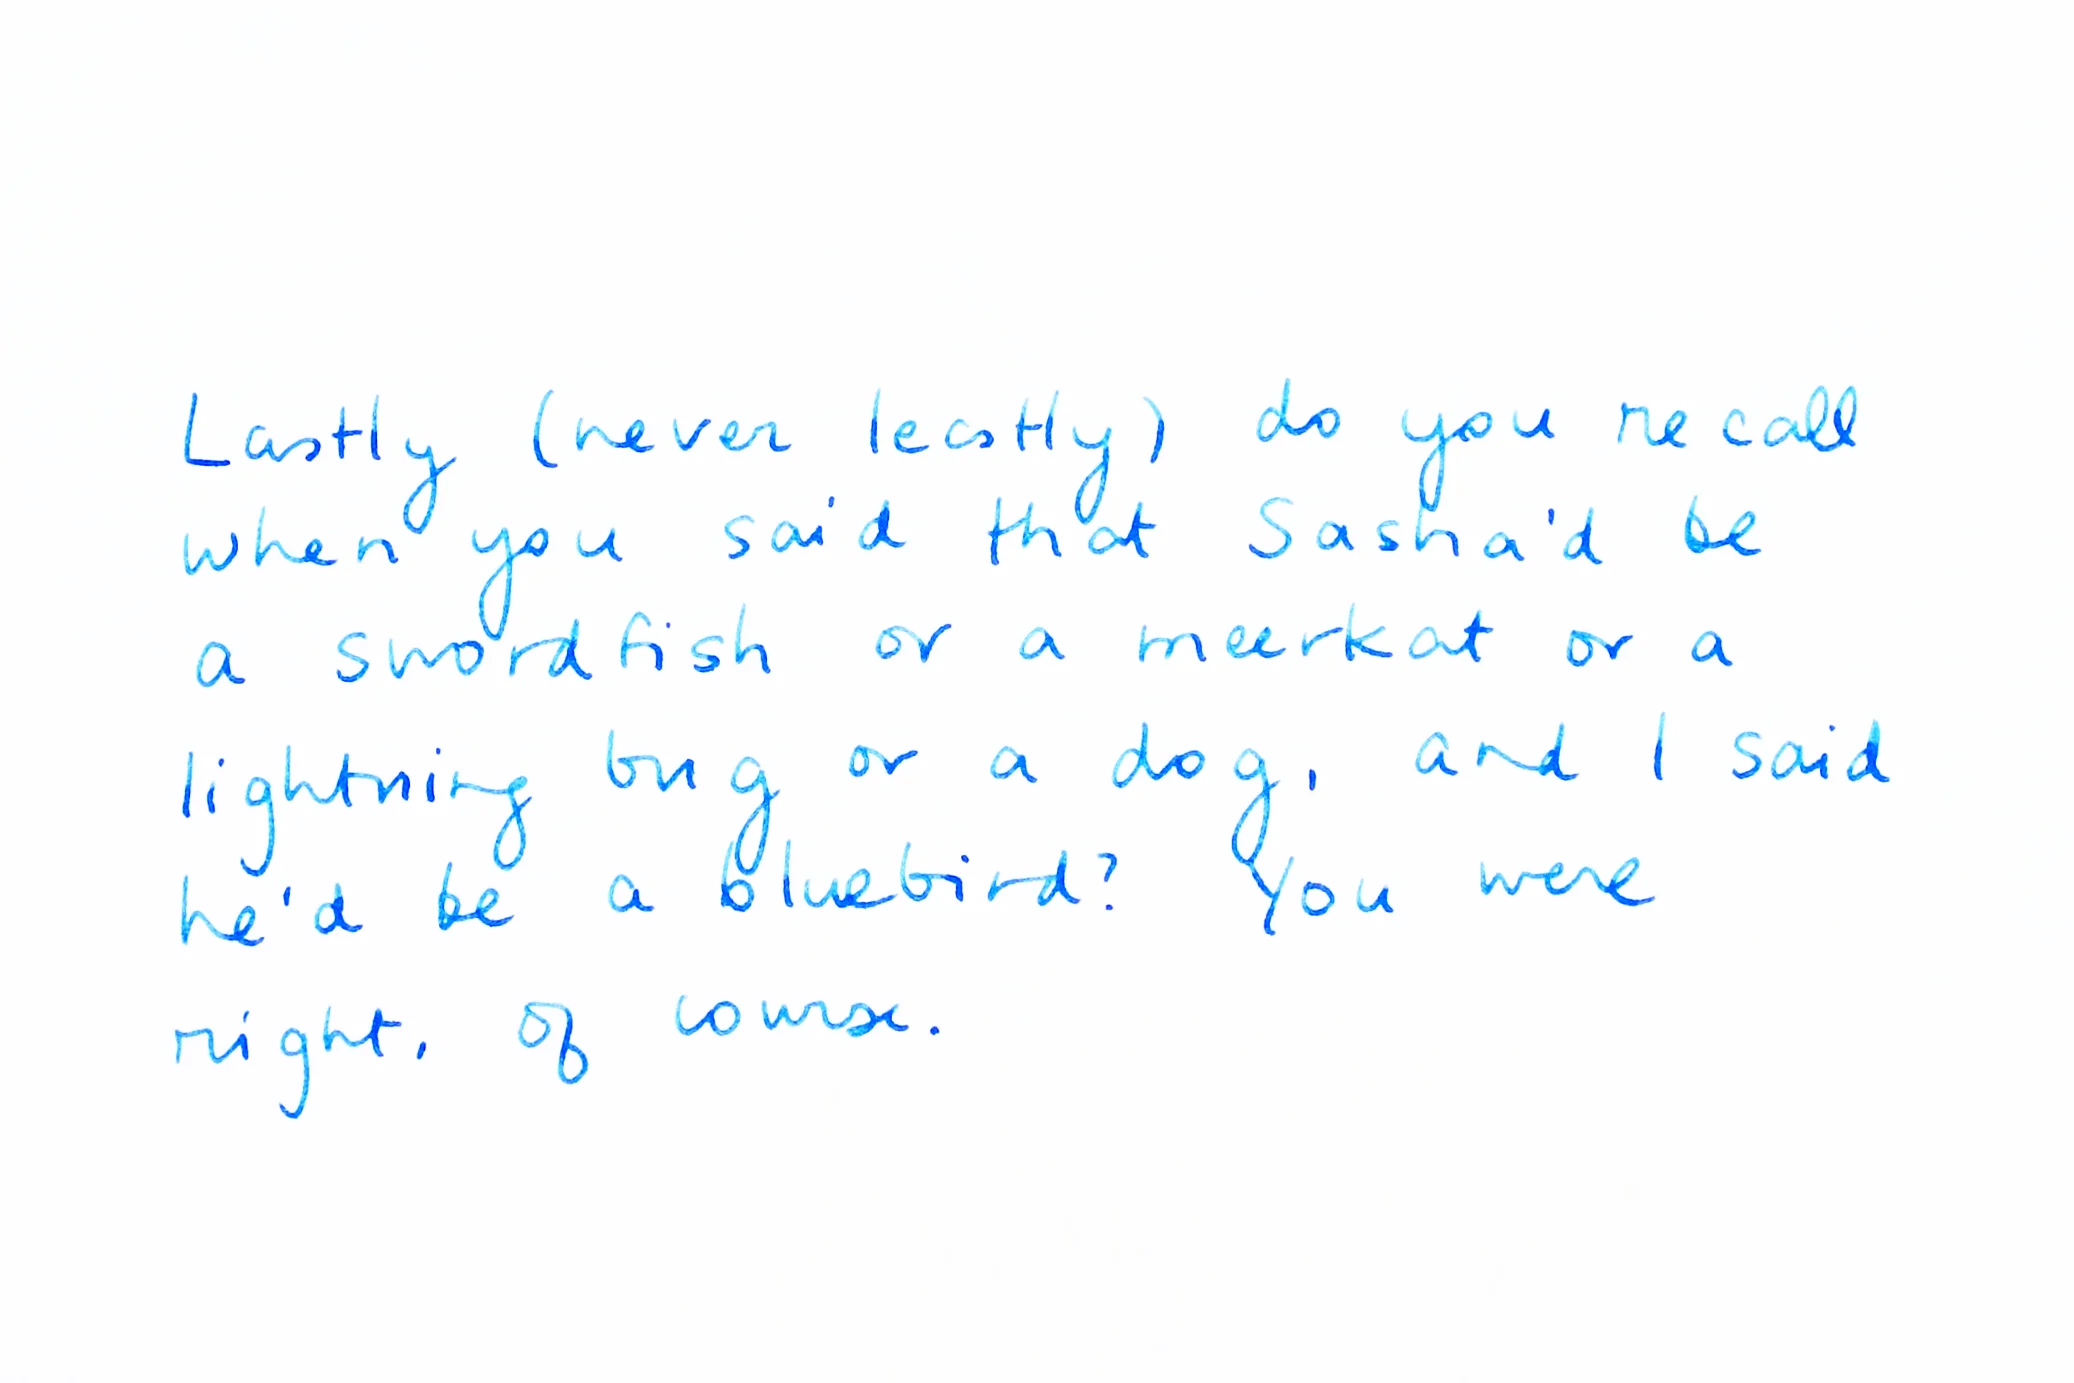 Lastly (never leastly) do you recall
when you said that Sasha'd be
a swordfish or a meerkat or a
lightning bug or a dog, and I said
he'd be a bluebird? You were
right, of course.